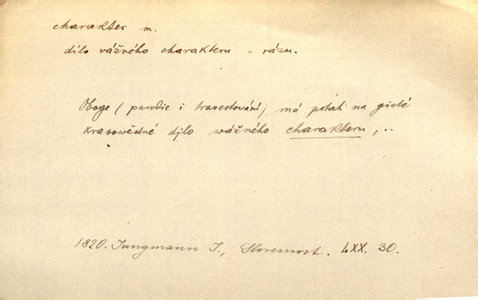 charakter m.
dílo vážného charakteru = rázu.
Oboge (parodie i travestování) má potah na gisté
krasowědné djlo wážného charakteru,..
1820. Jungmann J., Slovesnost. LXX. 30.